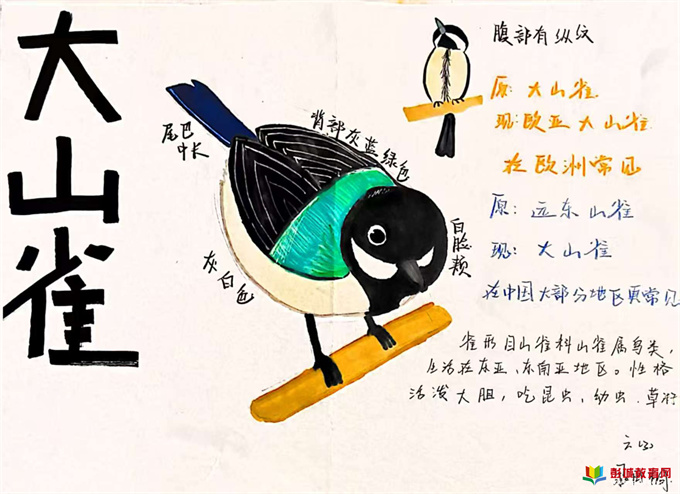 大山雀
尾巴
中长
背部灰蓝绿色
白脸颊
灰白色
腹部有纵纹
原:大山雀
现:欧亚大山雀
在欧洲常见
原:远东山雀
现:大山雀
在中国大部分地区更常见
雀形目山雀科山雀属鸟类,
生活在东亚、东南亚地区。性格
活泼大胆,吃昆虫,幼虫.草籽
彭城教育网